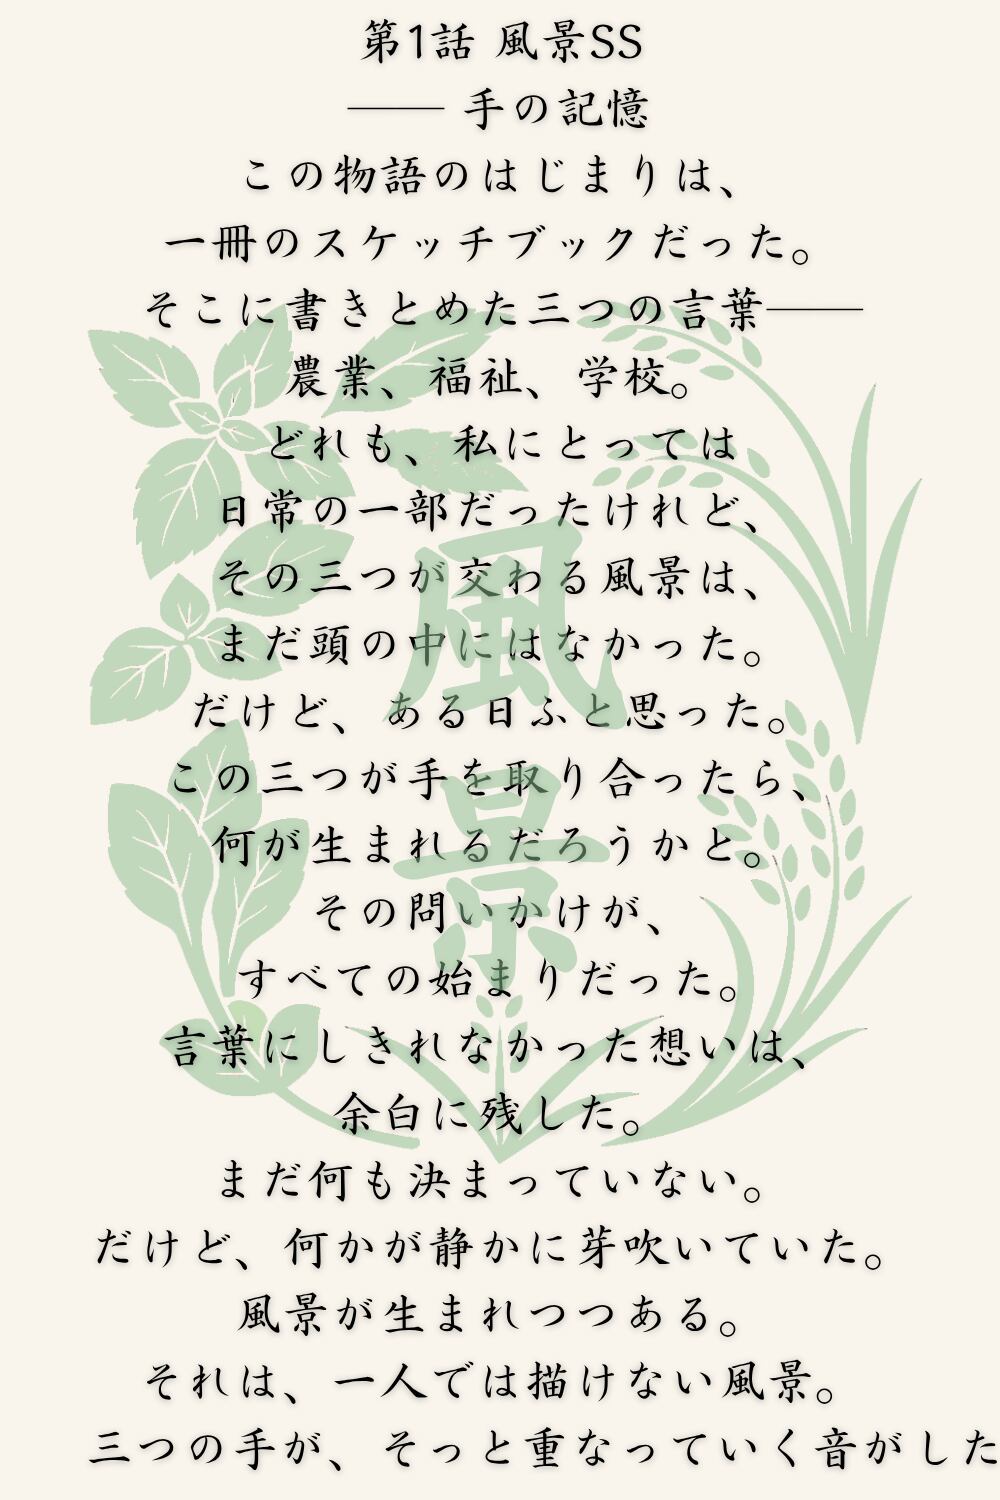 第1話 風景SS
―― 手の記憶
この物語のはじまりは、
一冊のスケッチブックだった。
そこに書きとめた三つの言葉――
農業、福祉、学校。
どれも、私にとっては
日常の一部だったけれど、
その三つが交わる風景は、
まだ頭の中にはなかった。
だけど、ある日ふと思った。
この三つが手を取り合ったら、
何が生まれるだろうかと。
その問いかけが、
すべての始まりだった。
言葉にしきれなかった想いは、
余白に残した。
まだ何も決まっていない。
だけど、何かが静かに芽吹いていた。
風景が生まれつつある。
それは、一人では描けない風景。
三つの手が、そっと重なっていく音がした
風景